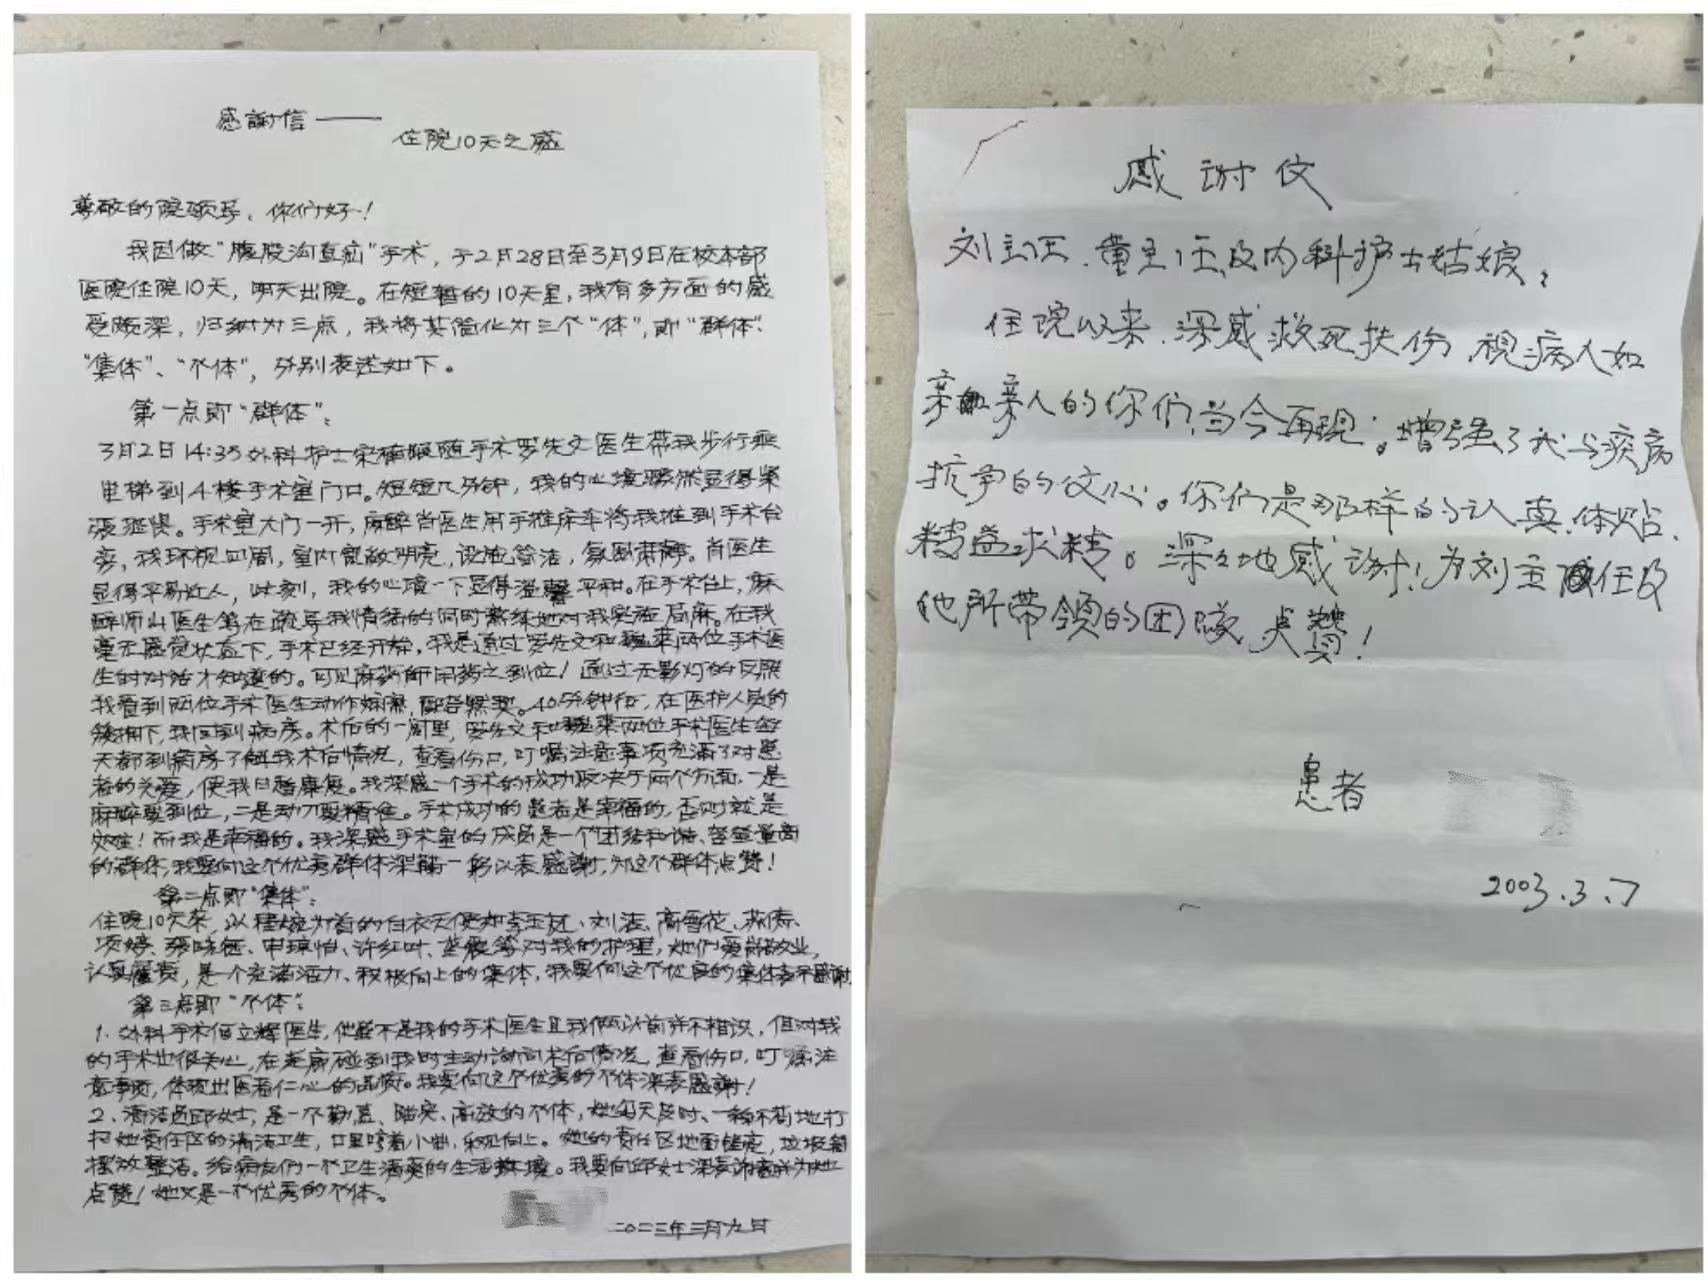 感謝信——
住院10天之感
尊敬的院领导，你们好！
我因做“腹股沟直疝”手术，于2月28日至3月9日在校本部
医院住院10天，明天出院。在短暂的10天里，我有多方面的感
受颇深，归纳为三点，我将其简化为三个“体”，即“群体”、
“集体”、“个体”，分别表述如下。
第一点即“群体”：
3月2日14:35外科护士宋 随手术罗先文医生带我步行乘
电梯到4楼手术室门口。短短几分钟，我的心境骤然显得紧
張 惧。手术室大门一开，麻醉肖医生用手推床车将我推到手术台
旁，我环视四周，室内宽敞明亮，设施简洁，氛围肃静。肖医生
显得平易近人，此刻，我的心境一下显得温馨平和。在手术台上，麻
醉师 医生等在疏导我情绪的同时熟练地对我实施局麻。在我
毫无感觉状态下，手术已经开始，我是通过罗先文和 两位手术医
生的对话才知道的。可见麻药师用药之到位！通过无影灯的反照
我看到两位手术医生动作娴熟，配合默契。40分钟后，在医护人员的
簇拥下，我回到病房。术后的一周里，罗先文和 两位手术医生每
天都到病房了解我术后情况，查看伤口，叮嘱注意事项充满了对患
者的关爱，使我日趋康复。我深感一个手术的成功取决于两个方面，一是
麻醉要到位，二是动刀要精准。手术成功的患者是幸福的，否则就是
灾难！而我是幸福的。我深感手术室的成员是一个团结和谐、 量高
的群体，我要向这个优秀群体深鞠一躬以表感謝，为这个群体点赞！
第二点即“集体”：
住院10天来，以 为首的白衣天使如李玉 、刘洁、高雪花、 、
项婷、张晓 、申琼怡、许红叶、 等对我的护理，她们爱岗敬业，
认真履责，是一个充满活力、积极向上的集体，我要向这个优良的集体表示感謝
第三点即“个体”：
1、外科手术何立辉医生，他虽不是我的手术医生且我俩以前并不相识，但对我
的手术也很关心，在走廊碰到我时主动询问术后情况，查看伤口，叮嘱注
意事项，体现出医者仁心的品质。我要向这个优秀的个体深表感謝！
2、清洁员邱女士，是一个勤恳、踏实、高效的个体，她每天及时、一丝不苟地打
扫她责任区的清洁卫生，口里哼着小曲，积极向上。她的责任区地面 亮，垃圾
摆放整洁。给病友们一个卫生清爽的生活环境。我要向邱女士深表谢意并为她
点赞！她又是一个优秀的个体。
二〇二三年三月九日
感谢伩
刘主任、董主任及内科护士姑娘：
住院以来，深感救死扶伤，视病人如
亲 亲人的你们当今再现；增强了我与疾病
抗争的 心。你们是那样的认真、体贴、
精益求精。深々地感谢！为刘主任及
他所带领的团队点贊！
患者
2003.3.7